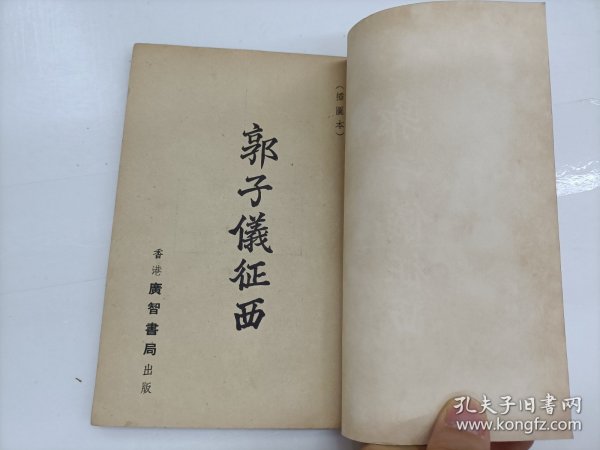 （插圖本）
郭子儀征西
香港廣智書局出版
孔夫子旧书网
www.kongfz.com